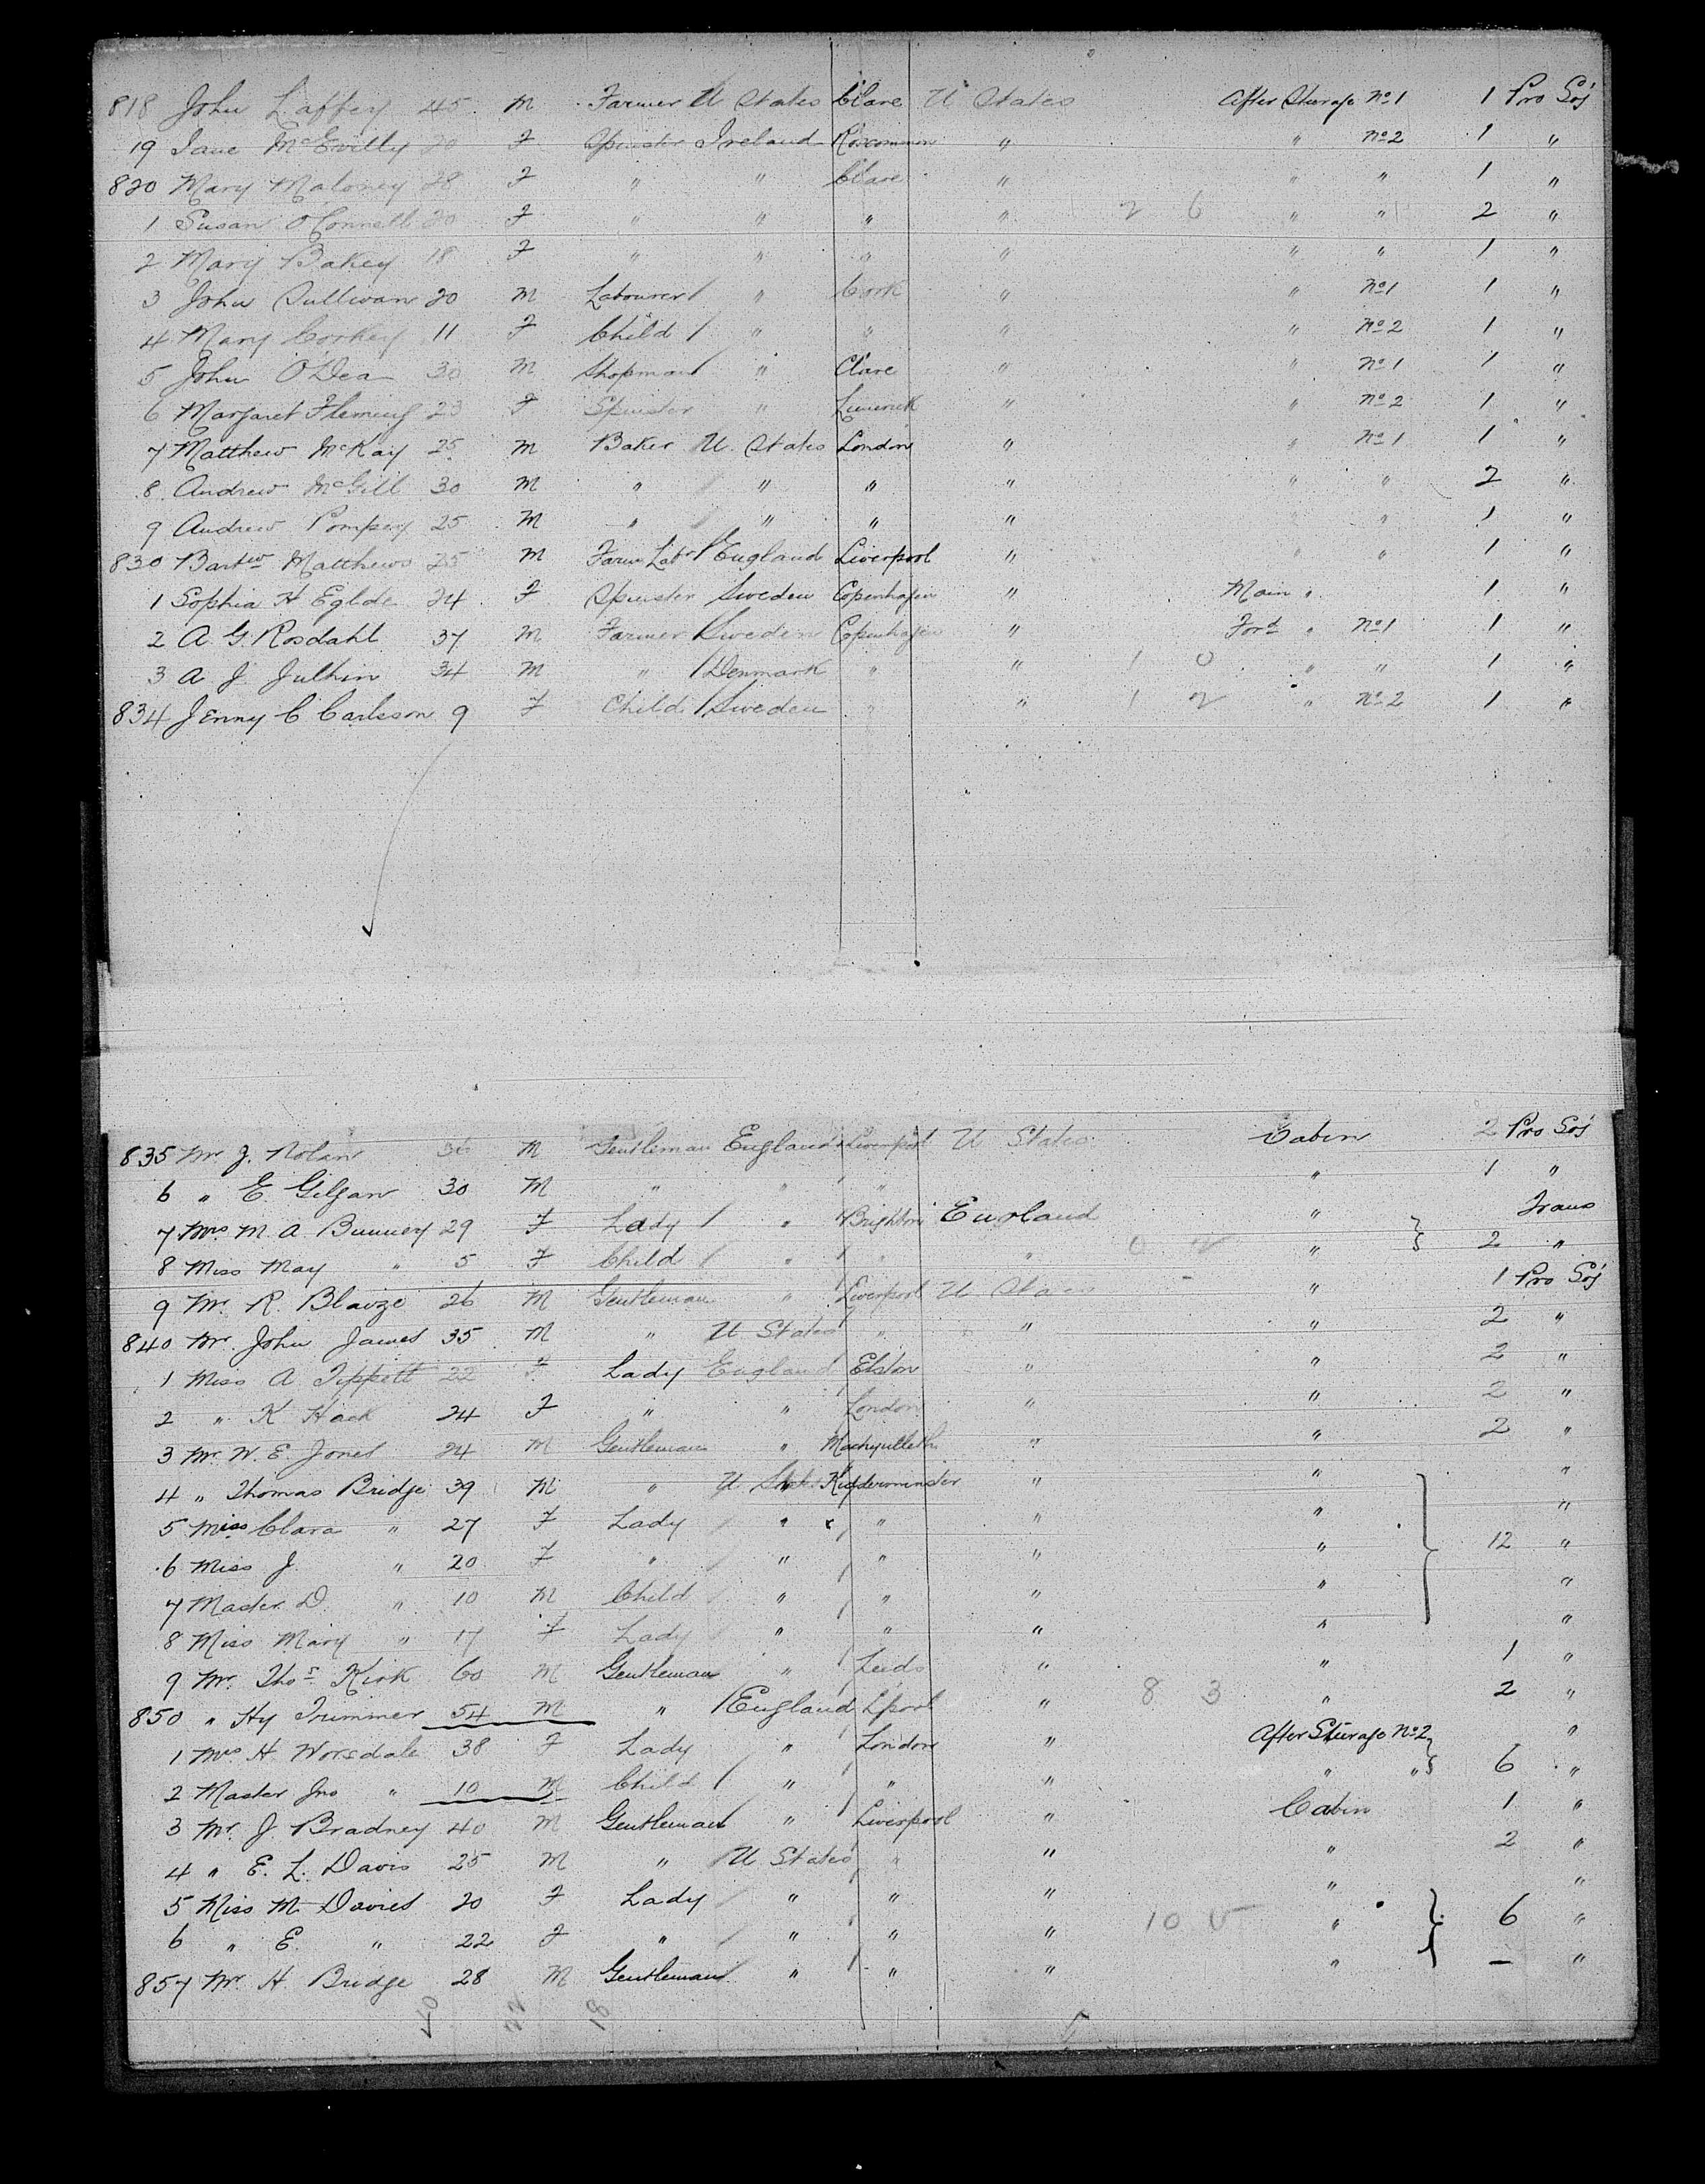 818 John Laffey 45 M Farmer U States Clare U States After Sturage No 1 1 Pro Soj
19 Jane McEvilly 20 F Spinster Ireland Roscommon " " No 2 1 "
820 Mary Maloney 28 F " " Clare " " " 1 "
1 Susan O'Connell 20 F " " " " 2 6 " " 2 "
2 Mary Bakey 18 F " " " " " " 1 "
3 John Sullivan 20 M Labourer " Cork " " No 1 1 "
4 Mary Corkey 11 F Child " " " " No 2 1 "
5 John O'Dea 30 M Shopman " Clare " " No 1 1 "
6 Margaret Fleming 23 F Spinster " Limerick " " No 2 1 "
7 Matthew McKay 25 M Baker U. States London " " No 1 1 "
8 Andrew McGill 30 M " " " " " " 2 "
9 Andrew Pompey 25 M " " " " " " 1 "
830 Bartw Matthews 25 M Farm Labr England Liverpool " " " 1 "
1 Sophia H Eglode 24 F Spinster Sweden Copenhagen " Main " 1 "
2 A. G. Rosdahl 37 M Farmer Sweden Copenhagen " Ford " No 1 1 "
3 A J Julhin 34 M " Denmark " " 1 0 " " 1 "
834 Jenny C Carlsson 9 F Child Sweden " " 1 2 " No 2 1 "
835 Mr J. Nolan 36 M Gentleman England Liverpool U States Cabin 2 Pro Soj
6 " E. Gilgan 30 M " " " " 1 "
7 Mrs M. A Bunney 29 F Lady " Brighton England " Trans
8 Miss May " 5 F Child " " " 0 2 " 2 "
9 Mr. R. Blaoze 26 M Gentleman " Liverpool U Sta " 1 Pro Soj
840 Mr. John James 35 M " U States " " " 2 "
1 Miss A Tippett 22 F Lady England Elston " " 2 "
2 " K Hack 24 F " " London " " 2 "
3 Mr. W. E. Jones 24 M Gentleman " Machynlleth " " 2 "
4 " Thomas Bridge 39 M " U Stat. Kidderminster " " "
5 Miss Clara " 27 F Lady " " " " "
6 Miss J. " 20 F " " " " " 12 "
7 Master D. " 10 M Child " " " " "
8 Miss Mary " 17 F Lady " " " " "
9 Mr. Thos Kirk 60 M Gentleman " Leeds " " 1 "
850 " Hy Trimmer 54 M " England Lpool " 8 3 " 2 "
1 Mrs H. Worsdale 38 F Lady " London " After Sturage No 2 "
2 Master Jno " 10 M Child " " " " " 6 "
3 Mr. J. Bradney 40 M Gentleman " Liverpool " Cabin 1 "
4 " E. L. Davis 25 M " U States " " " 2 "
5 Miss M Davies 20 F Lady " " " " "
6 " E. " 22 F " " " " 10 5 " 6 "
857 Mr H. Bridge 28 M Gentleman " " " " — "
40 22 18